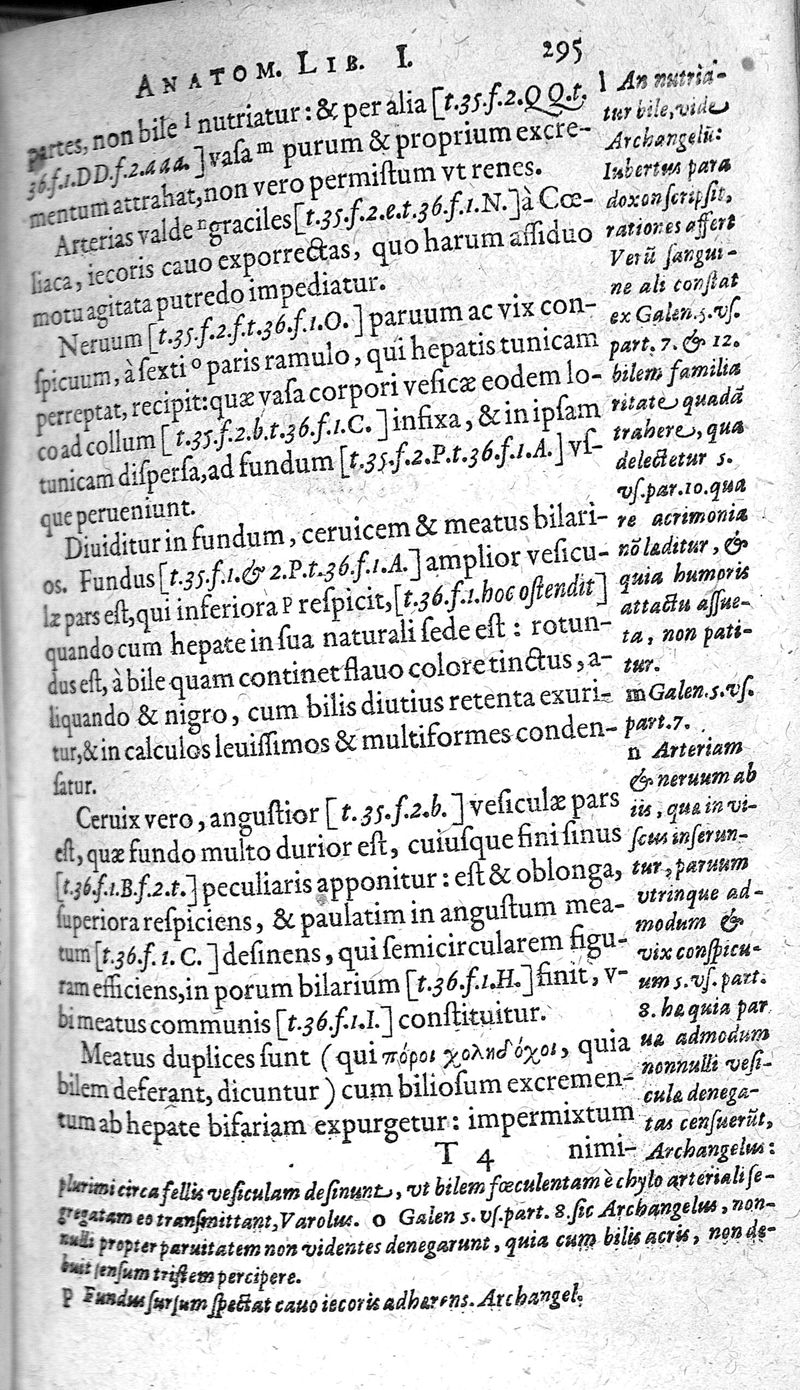 ANATOM. LIB. I. 295
partes, non bile l nutriatur: & per alia [t.35.f.2.QQ.t.
36.f.1.DD.f.2.aaa.] vasa m purum & proprium excre-
mentum attrahat, non vero permistum vt renes.
Arterias valde n graciles [t.35.f.2.e.t.36.f.1.N.] à Cœ-
liaca, iecoris cauo exporrectas, quo harum assiduo
motu agitata putredo impediatur.
Neruum [t.35.f.2.f.t.36.f.1.O.] paruum ac vix con-
spicuum, à sexti o paris ramulo, qui hepatis tunicam
perreptat, recipit: quæ vasa corpori vesicæ eodem lo-
co ad collum [t.35.f.2.b.t.36.f.1.C.] infixa, & in ipsam
tunicam dispersa, ad fundum [t.35.f.2.P.t.36.f.1.A.] vs-
que perueniunt.
Diuiditur in fundum, ceruicem & meatus bilari-
os. Fundus [t.35.f.1.& 2.P.t.36.f.1.A.] amplior vesicu-
læ pars est, qui inferiora p respicit, [t.36.f.1.hoc ostendit]
quando cum hepate in sua naturali sede est: rotun-
dus est, à bile quam continet flauo colore tinctus, a-
liquando & nigro, cum bilis diutius retenta exuri-
tur, & in calculos leuissimos & multiformes conden-
satur.
Ceruix vero, angustior [t.35.f.2.b.] vesiculæ pars
est, quæ fundo multo durior est, cuiusque fini sinus
[t.36.f.1.B.f.2.t.] peculiaris apponitur: est & oblonga,
superiora respiciens, & paulatim in angustum mea-
tum [t.36.f.1.C.] desinens, qui semicircularem figu-
ram efficiens, in porum bilarium [t.36.f.1.H.] finit, v-
bi meatus communis [t.36.f.1.I.] constituitur.
Meatus duplices sunt (qui πόροι χοληδόχοι, quia
bilem deferant, dicuntur) cum biliosum excremen-
tum ab hepate bifariam expurgetur: impermixtum
T 4 nimi-
l An nutria-
tur bile, vide
Archangelũ:
Iubertus para
doxon scripsit,
rationes affert
Verũ sangui-
ne ali constat
ex Galen. 5. vs.
part. 7. & 12.
bilem familia
ritate quadã
trahere, qua
delectetur 5.
vs. par. 10. qua
re acrimonia
nõ læditur, &
quia humoris
attactu assue-
ta, non pati-
tur.
m Galen. 5. vs.
part. 7.
n Arteriam
& neruum ab
iis, quæ in vi-
scus inserun-
tur, paruum
vtrinque ad-
modum &
vix conspicu-
um 5. vs. part.
8. hæ quia par
uæ admodum
nonnulli vesi-
culæ denega-
tas censuerũt,
Archangelus:
plurimi circa fellis vesiculam desinunt, vt bilem fœculentam è chylo arteriali se-
gregatam eo transmittant, Varolus. o Galen 5. vs. part. 8. sic Archangelus, non-
nulli propter paruitatem non videntes denegarunt, quia cum bilis acris, non de-
buit sensum tristem percipere.
p Fundus sursum spectat cauo iecoris adhærens. Archangel.